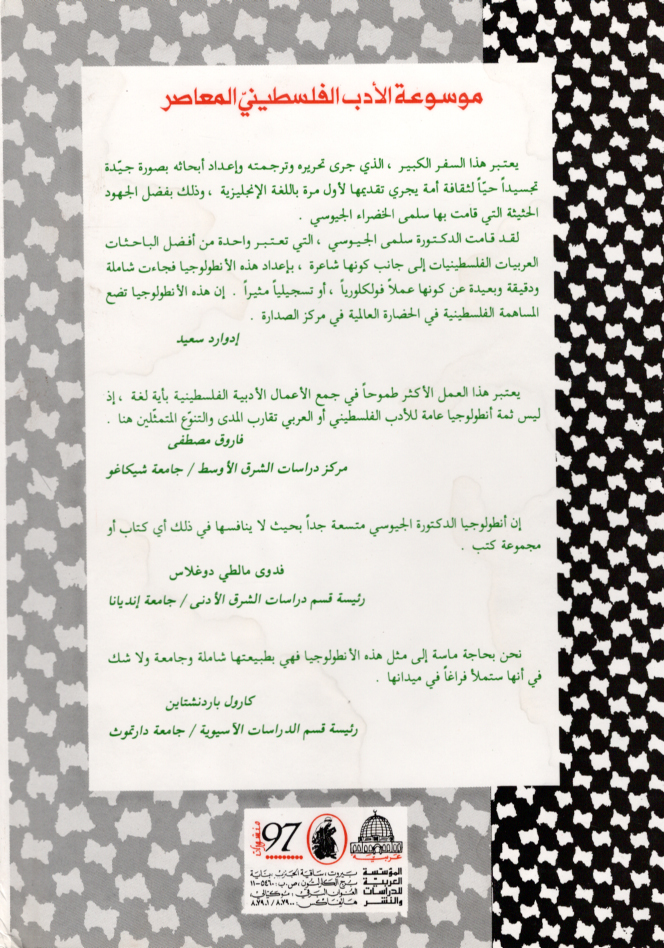 موسوعة الأدب الفلسطينيّ المعاصر
يعتبر هذا السفر الكبير ، الذي جرى تحريره وترجمته وإعداد أبحاثه بصورة جيّدة
تجسيداً حيّاً لثقافة أمة يجري تقديمها لأول مرة باللغة الإنجليزية ، وذلك بفضل الجهود
الحثيثة التي قامت بها سلمى الخضراء الجيوسي .
لقد قامت الدكتورة سلمى الجيوسي ، التي تعتبر واحدة من أفضل الباحثات
العربيات الفلسطينيات إلى جانب كونها شاعرة ، بإعداد هذه الأنطولوجيا فجاءت شاملة
ودقيقة وبعيدة عن كونها عملاً فولكلورياً ، أو تسجيلياً مثيراً . إن هذه الأنطولوجيا تضع
المساهمة الفلسطينية في الحضارة العالمية في مركز الصدارة .
إدوارد سعيد
يعتبر هذا العمل الأكثر طموحاً في جمع الأعمال الأدبية الفلسطينية بأية لغة ، إذ
ليس ثمة أنطولوجيا عامة للأدب الفلسطيني أو العربي تقارب المدى والتنوّع المتمثّلين هنا .
فاروق مصطفى
مركز دراسات الشرق الأوسط / جامعة شيكاغو
إن أنطولوجيا الدكتورة الجيوسي متسعة جداً بحيث لا ينافسها في ذلك أي كتاب أو
مجموعة كتب .
فدوى مالطي دوغلاس
رئيسة قسم دراسات الشرق الأدنى / جامعة إنديانا
نحن بحاجة ماسة إلى مثل هذه الأنطولوجيا فهي بطبيعتها شاملة وجامعة ولا شك
في أنها ستملأ فراغاً في ميدانها .
كارول باردنشتاين
رئيسة قسم الدراسات الآسيوية / جامعة دارتموث
منشورات
97
عربية
المؤسسة
العربية
للدراسات
والنشر
بيروت، ساقية الجنزير، بناية
برج الكارلتون، ص.ب: ٥٤٦٠-١١
العنوان البرقي، موكيالي
هاتفاكس: ٨٠٧٩٠٠/٨٠٧٩٠١